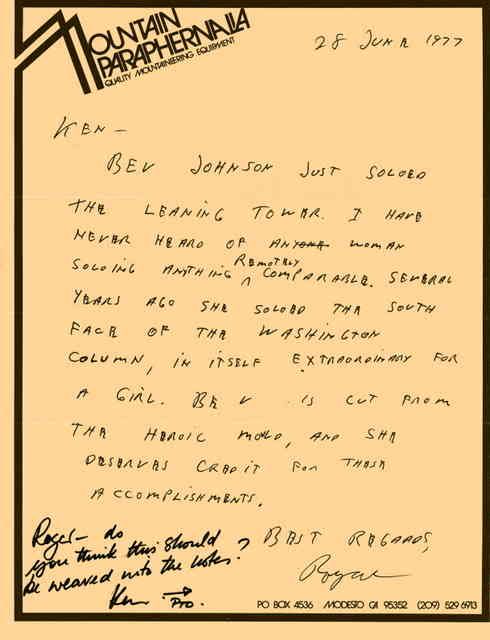 MOUNTAIN
PARAPHERNALIA
QUALITY MOUNTAINEERING EQUIPMENT
28 JUNE 1977
KEN —
BEV JOHNSON JUST SOLOED
THE LEANING TOWER. I HAVE
NEVER HEARD OF ANYONE WOMAN
SOLOING ANYTHING REMOTELY COMPARABLE. SEVERAL
YEARS AGO SHE SOLOED THE SOUTH
FACE OF THE WASHINGTON
COLUMN, IN ITSELF EXTRAORDINARY FOR
A GIRL. BEV IS CUT FROM
THE HEROIC MOLD, AND SHE
DESERVES CREDIT FOR THESE
ACCOMPLISHMENTS.
BEST REGARDS,
Royal
Roger – do
you think this should
be weaved into the notes?
Ken → Pro.
PO BOX 4536 MODESTO CA 95352 (209) 529 6913